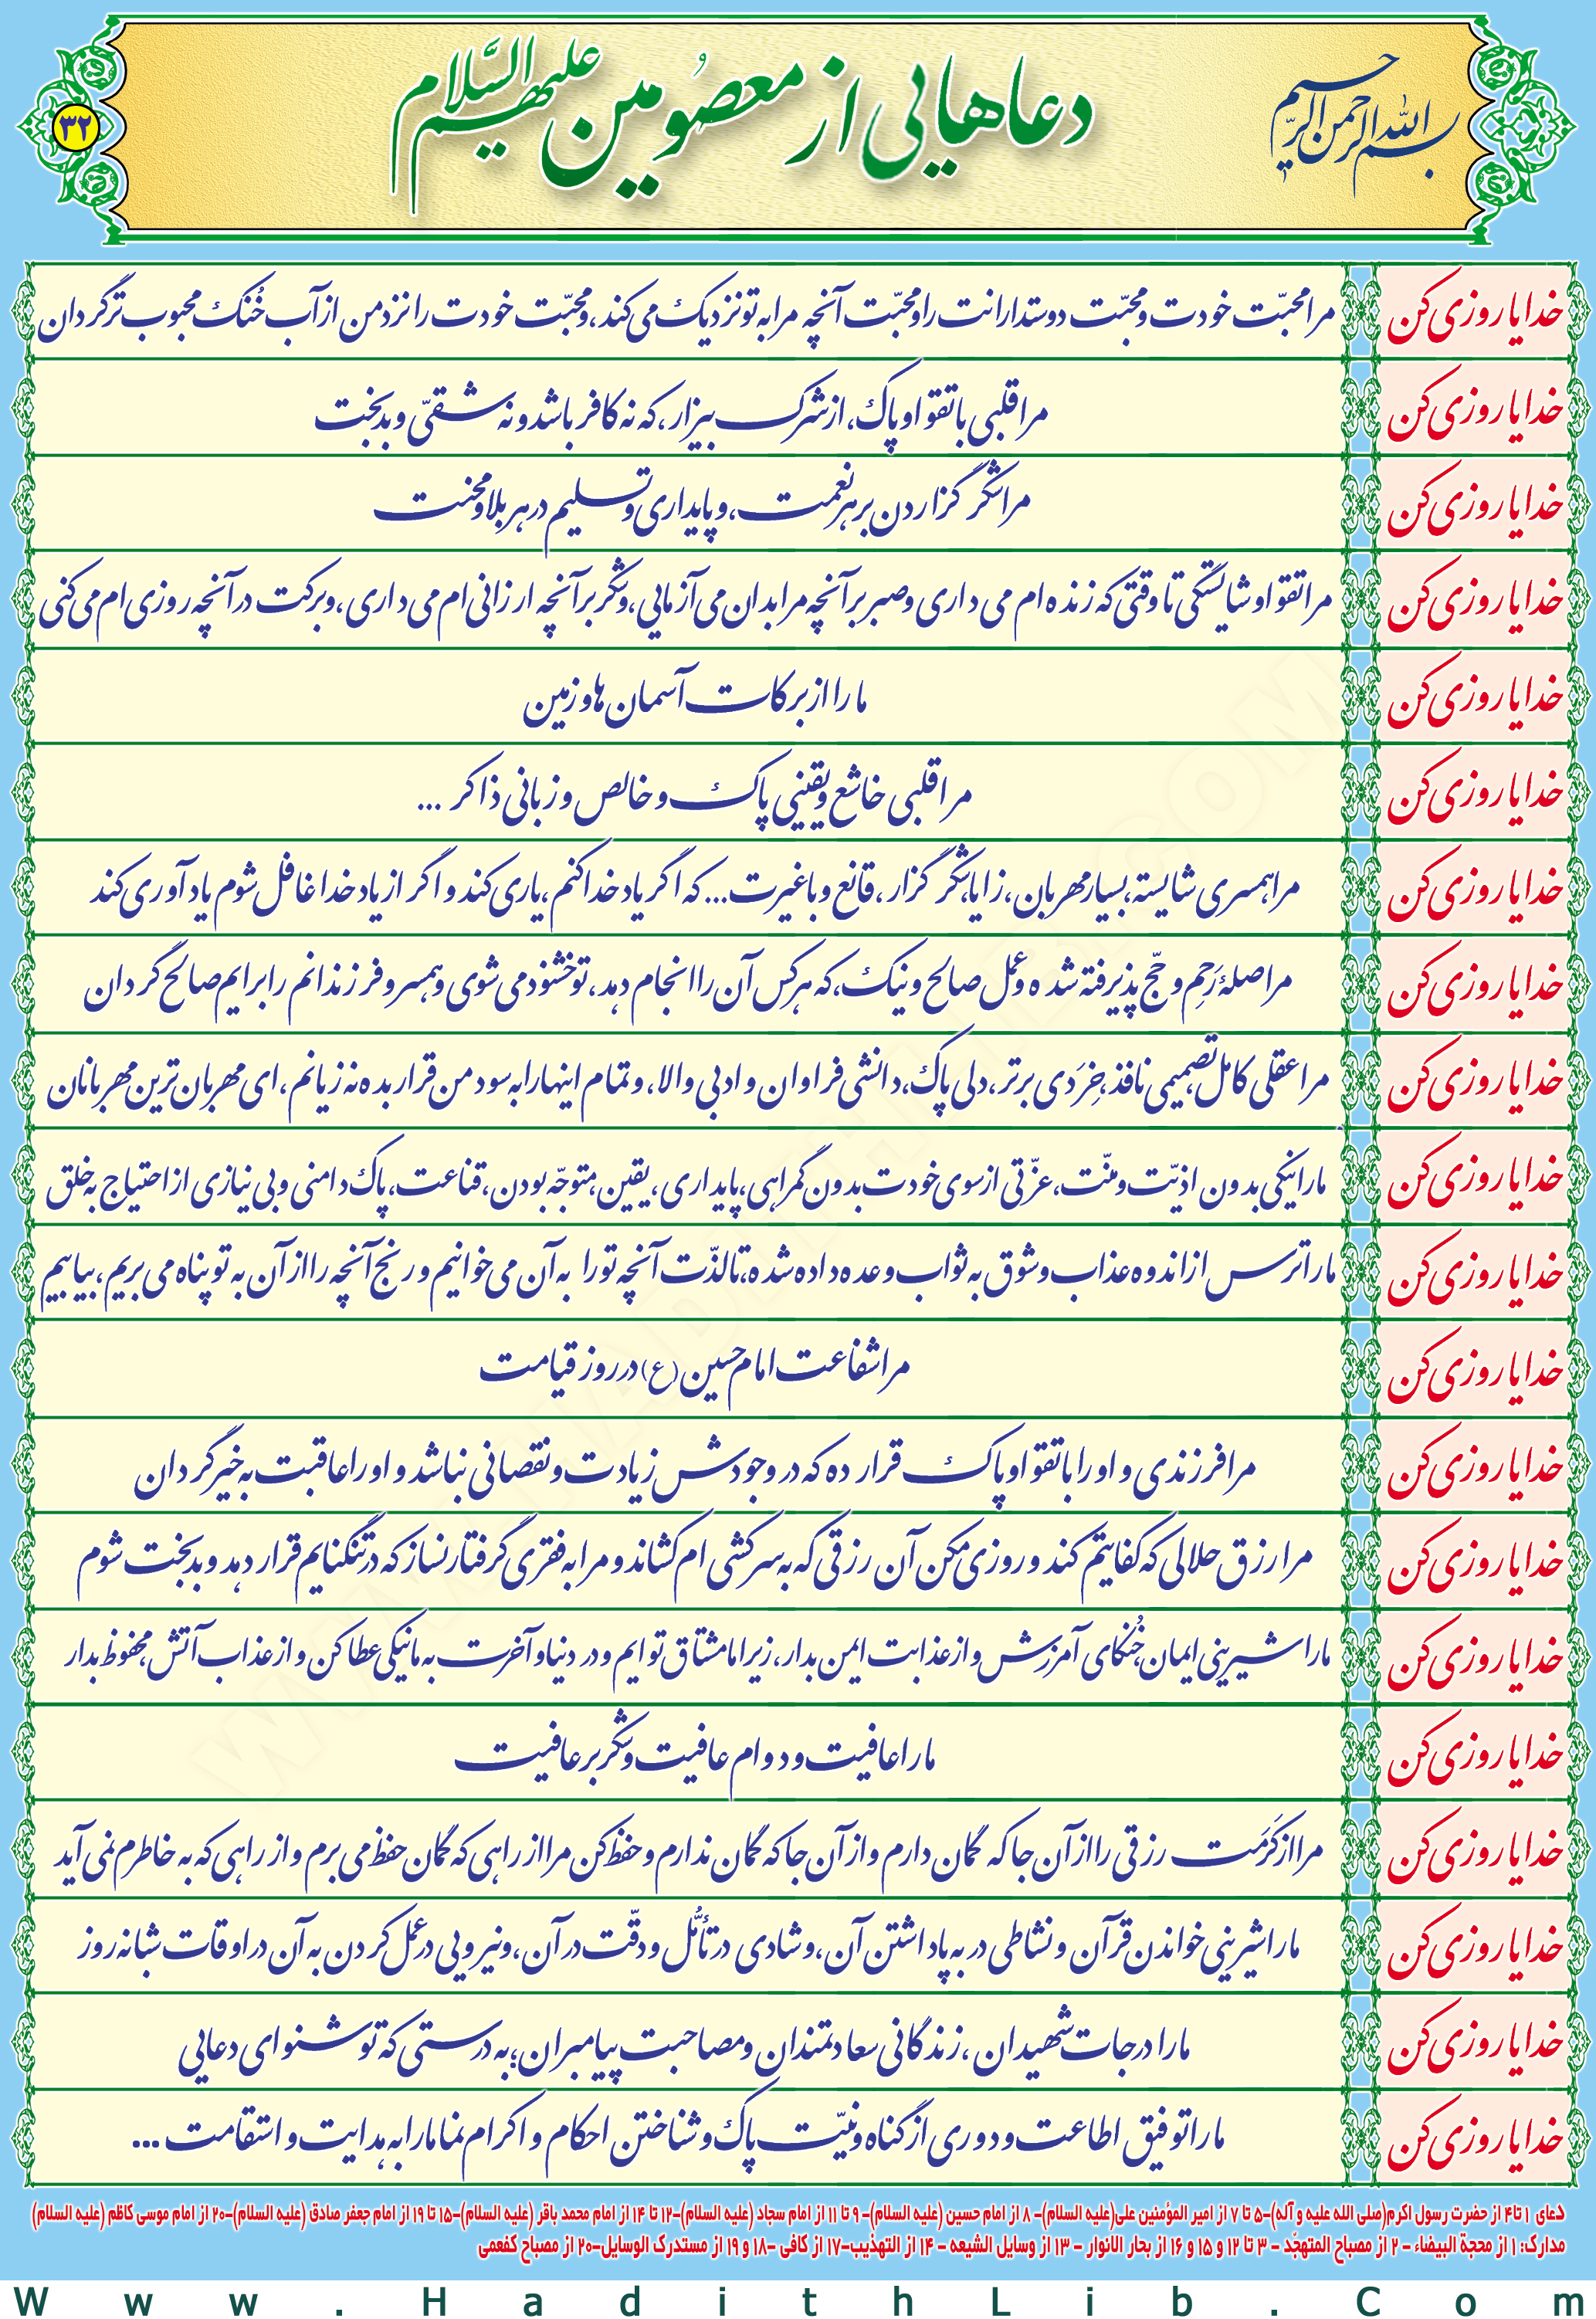 بسم الله الرحمن الرحیم
دعاهایی از معصومین علیهم السّلام
۳۲
خدایا روزی کن مرا محبّت خودت و محبّت دوستدارانت را و محبّت آنچه مرا به تو نزدیک می کند، و محبّت خودت را نزد من از آب خُنک محبوب تر گردان
خدایا روزی کن مرا قلبی با تقوا و پاک، از شرک بیزار، که نه کافر باشد و نه شقیّ و بدبخت
خدایا روزی کن مرا شکر گزاردن بر هر نعمت، و پایداری و تسلیم در هر بلا و محنت
خدایا روزی کن مرا تقوا و شایستگی تا وقتی که زنده ام می داری و صبر بر آنچه مرا بدان می آزمایی، و شکر بر آنچه ارزانی ام می داری، و برکت در آنچه روزی ام می کنی
خدایا روزی کن ما را از برکات آسمان ها و زمین
خدایا روزی کن مرا قلبی خاشع و یقینی پاک و خالص و زبانی ذاکر ...
خدایا روزی کن مرا همسری شایسته، بسیار مهربان، زایا، شکر گزار، قانع و با غیرت... که اگر یاد خدا کنم، یاری کند و اگر از یاد خدا غافل شوم یادآوری کند
خدایا روزی کن مرا صلهٔ رَحِم و حجّ پذیرفته شده و عمل صالح و نیک، که هر کس آن را انجام دهد، تو خشنود می شوی و همسر و فرزندانم را برایم صالح گردان
خدایا روزی کن مرا عقلی کامل، تصمیمی نافذ، خِرَدی برتر، دلی پاک، دانشی فراوان و ادبی والا، و تمام اینها را به سود من قرار بده نه زیانم، ای مهربان ترین مهربانان
خدایا روزی کن ما را نیکی بدون اذیّت و منّت، عزّتی از سوی خودت بدون گمراهی، پایداری، یقین، متوجّه بودن، قناعت، پاک دامنی و بی نیازی از احتیاج به خلق
خدایا روزی کن ما را ترس از اندوه عذاب و شوق به ثواب وعده داده شده، تا لذّت آنچه تو را به آن می خوانیم و رنج آنچه را از آن به تو پناه می بریم، بیابیم
خدایا روزی کن مرا شفاعت امام حسین (ع) در روز قیامت
خدایا روزی کن مرا فرزندی و او را با تقوا و پاک قرار ده که در وجودش زیادت و نقصانی نباشد و او را عاقبت به خیر گردان
خدایا روزی کن مرا رزق حلالی که کفایتم کند و روزی مکن آن رزقی که به سرکشی ام کشاند و مرا به فقری گرفتار نساز که در تنگنایم قرار دهد و بدبخت شوم
خدایا روزی کن ما را شیرینی ایمان، خُنکای آمرزش و از عذابت ایمن بدار، زیرا ما مشتاق تو ایم و در دنیا و آخرت به ما نیکی عطا کن و از عذاب آتش محفوظ بدار
خدایا روزی کن ما را عافیت و دوام عافیت و شکر بر عافیت
خدایا روزی کن مرا از کَرَمت رزقی را از آن جا که گمان دارم و از آن جا که گمان ندارم و حفظ کن مرا از راهی که گمان حفظ می برم و از راهی که به خاطرم نمی آید
خدایا روزی کن ما را شیرینی خواندن قرآن و نشاطی در به پا داشتن آن، و شادی در تأمُّل و دقّت در آن، و نیرویی در عمل کردن به آن در اوقات شبانه روز
خدایا روزی کن ما را درجات شهیدان، زندگانی سعادتمندان و مصاحبت پیامبران؛ به درستی که تو شنوای دعایی
خدایا روزی کن ما را توفیق اطاعت و دوری از گناه و نیّت پاک و شناختن احکام و اکرام نما ما را به هدایت و استقامت ...
دعای ۱ تا ۴ از حضرت رسول اکرم (صلی الله علیه و آله)-۵ تا ۷ از امیر المؤمنین علی(علیه السلام)- ۸ از امام حسین (علیه السلام)- ۹ تا ۱۱ از امام سجاد (علیه السلام)-۱۲ تا ۱۴ از امام محمد باقر (علیه السلام)-۱۵ تا ۱۹ از امام جعفر صادق (علیه السلام)-۲۰ از امام موسی کاظم (علیه السلام)
مدارک: ۱ از محجة البیضاء - ۲ از مصباح المتهجّد - ۳ تا ۱۲ و ۱۵ و ۱۶ از بحار الانوار - ۱۳ از وسایل الشیعه - ۱۴ از التهذیب-۱۷ از کافی -۱۸ و ۱۹ از مستدرک الوسایل-۲۰ از مصباح کفعمی
Www.HadithLib.Com